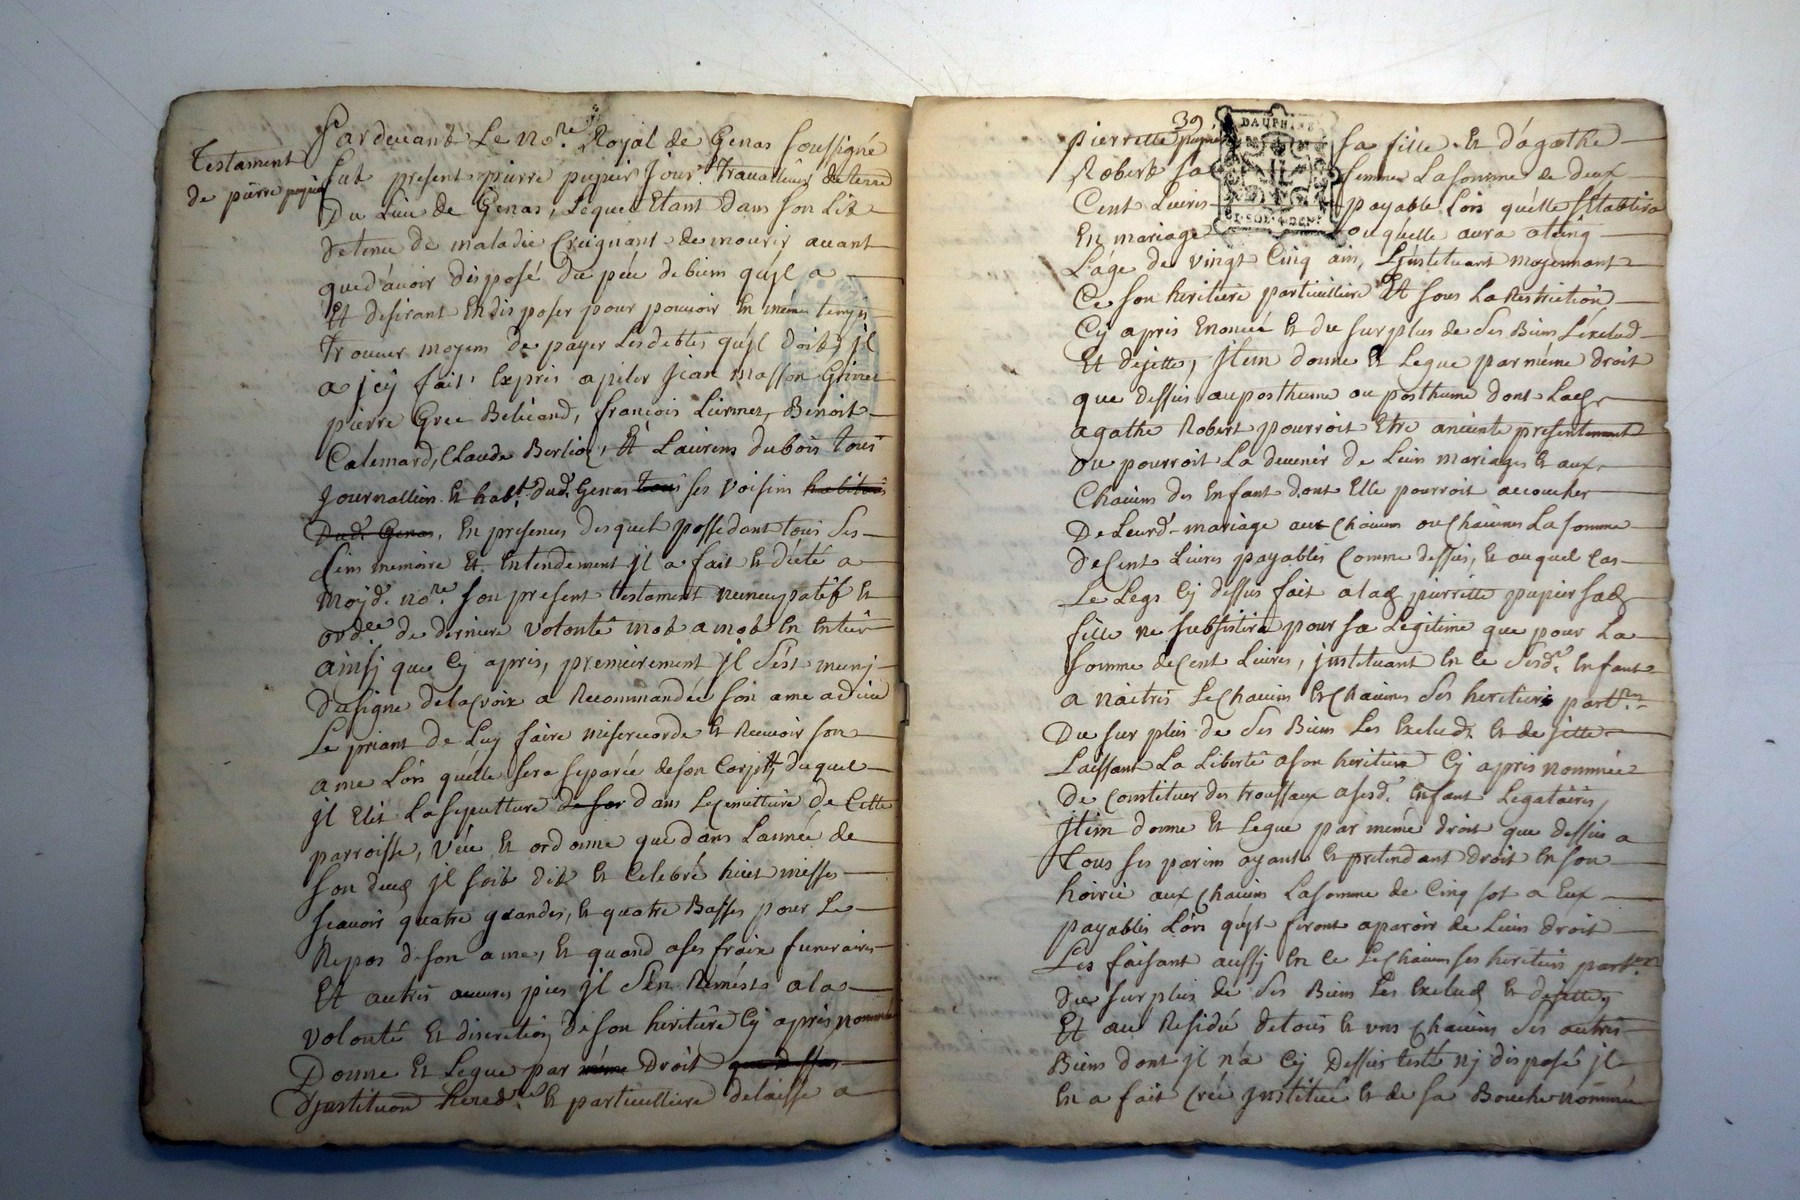 Testament
de pierre pupier
Pardevant Le no.re Royal de Genas soussigné
fut present pierre pupier Jour.r Travailleur de terre
Du Lieu de Genas, Lequel Etant dans son Lit
detenu de maladie Craignant de mourir avant
que d'avoir disposé du peu de biens qu'jl a
Et desirant En disposer pour pouvoir En même temps
trouver moyens de payer Les debtes qu'jl doit, jl
a jcy fait Exprès apeler Jean Masson Grinet
pierre Gree Belicand, françois Liennez, Benoit
Calemard, Claude Berlioz, Et Laurens dubois tous
Journalliers Et habt. dud. Genas tous ses voisins habitans
Dud. Genas, En presences desquels possedant tous ses
sens memoire Et Entendement jl a fait Et dicté a
Moyd. no.re son present testament nuncupatif Et
ord.ce de derniere volonté mot a mot En Entier
ainsj que Cy apres, premierement jl s'est munj
du signe de la Croix a Recommandée son ame a dieu
Le priant de Luy faire misericorde Et Recevoir son
ame Lors qu'elle sera separée de son Corps, duquel
jl Elit La sepulture de son dans Le Cimittiere de Cette
parroisse, veut Et ordonne que dans L'année de
son deced jl soit dit Et Celebré huit messes
scavoir quatre grandes, Et quatre Basses pour Le
Repos de son ame, Et quand a ses fraix funeraires
Et autres œuvres pies jl s'En Remets a la
volonté Et discretion de son heritiere Cy après nommée
Donne Et Legue par même Droit que dessus
d'jnstitution hered.re Et particulliere delaisse a
39
pierrette pupier sa fille Et d'agathe
DAUPHINE
Robert sa femme La somme de deux
Cent Livres payable Lors qu'elle s'Etablira
En mariage ou quelle aura ateing
L'age de vingt Cinq ans, L'jnstituant moyennant
Ce son heritiere particulliere Et sous La Restriction
Cy apres Enoncée Et du surplus de ses Biens L'exclud
Et dejette, jtem donne Et Legue par même droit
que dessus au posthume ou posthume dont Lad.
agathe Robert pourroit Etre anceinte presentement
ou pourroit La devenir de Leurs mariages Et aux
Chacuns des Enfant dont Elle pourroit accoucher
De Leurd. mariage aux chacuns ou chacunes La somme
de Cent Livres payables Comme dessus, Et auquel Cas
Le Legs Cy dessus fait a lad. pierrette pupier sad.
fille ne subsistira pour sa Legitime que pour La
somme de Cent Livres, jnstituant En ce sesd. Enfant
a naitres Le chacuns Et chacunes ses heritiers part.res
Du surplus de ses Biens Les Exclud Et dejitte
Laissant La Liberté a son heritiere Cy apres nommée
De Constituer des troussaux a sesd. Enfant Legataires,
Jtem donne Et Legue par même droit que dessus a
tous ses parens ayants Et pretendant droit En son
hoirie aux chacuns La somme de Cinq sol a Eux
payables Lors qu'jls feront aparoir de Leurs droit
Les faisant aussy En ce Le chacuns ses heritiers part.res
du surplus de ses Biens Les Exclud Et dejette,
Et au Residu de tous Et uns chacuns ses autres
Biens dont jl n'a Cy Dessus testé nj disposé jl
En a fait créé jnstitué Et de sa Bouche nommée